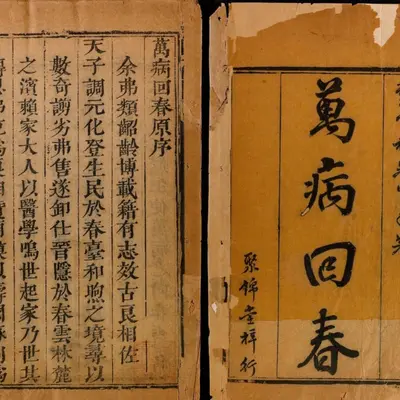 萬病回春
聚錦堂梓行
萬病回春原序
余弗類齠齡博載籍有志效古良相佐
天子調元化登生民於春臺和煦之境尋以
數奇謭劣弗售遂卸仕晉隱於春雲林麓
之濱賴家大人以醫學鳴世起家乃世其